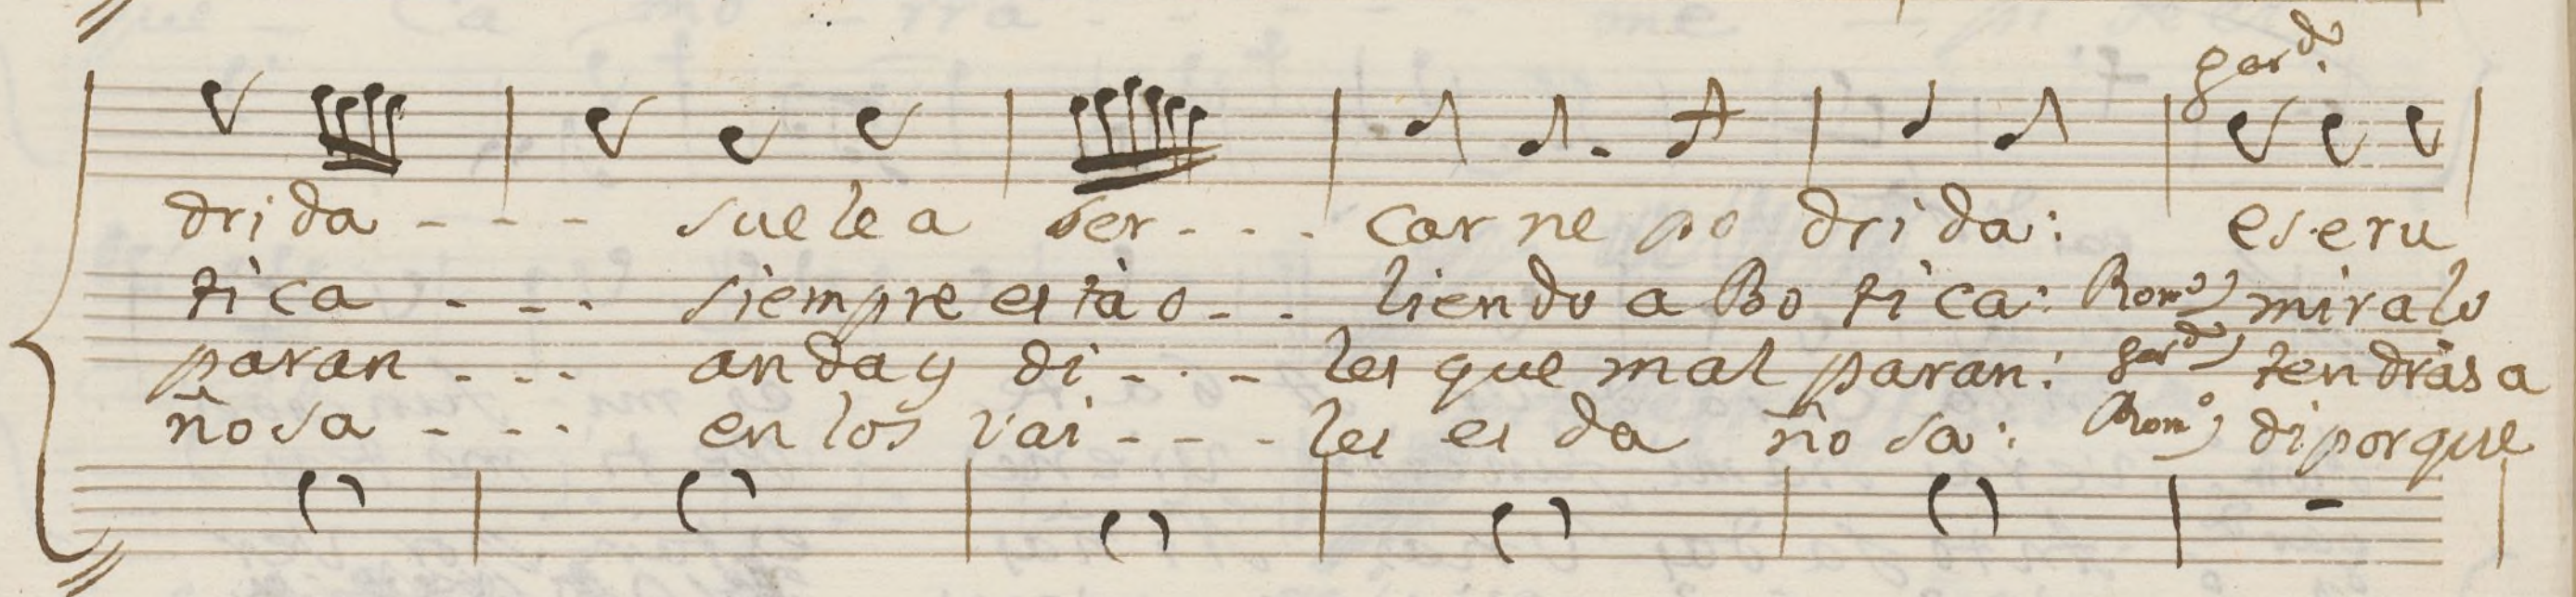 gard.º
drida - - - suele a ser - - - carne po drida: es eru
tìca - - - siempre està o - - liendo a Bo tìca: Romº) miralo
paran - - - anda y di - - - les que mal paran: gardº) tendràs a
ñosa - - - en los vai - - - les es da ñosa: Romº) di porque